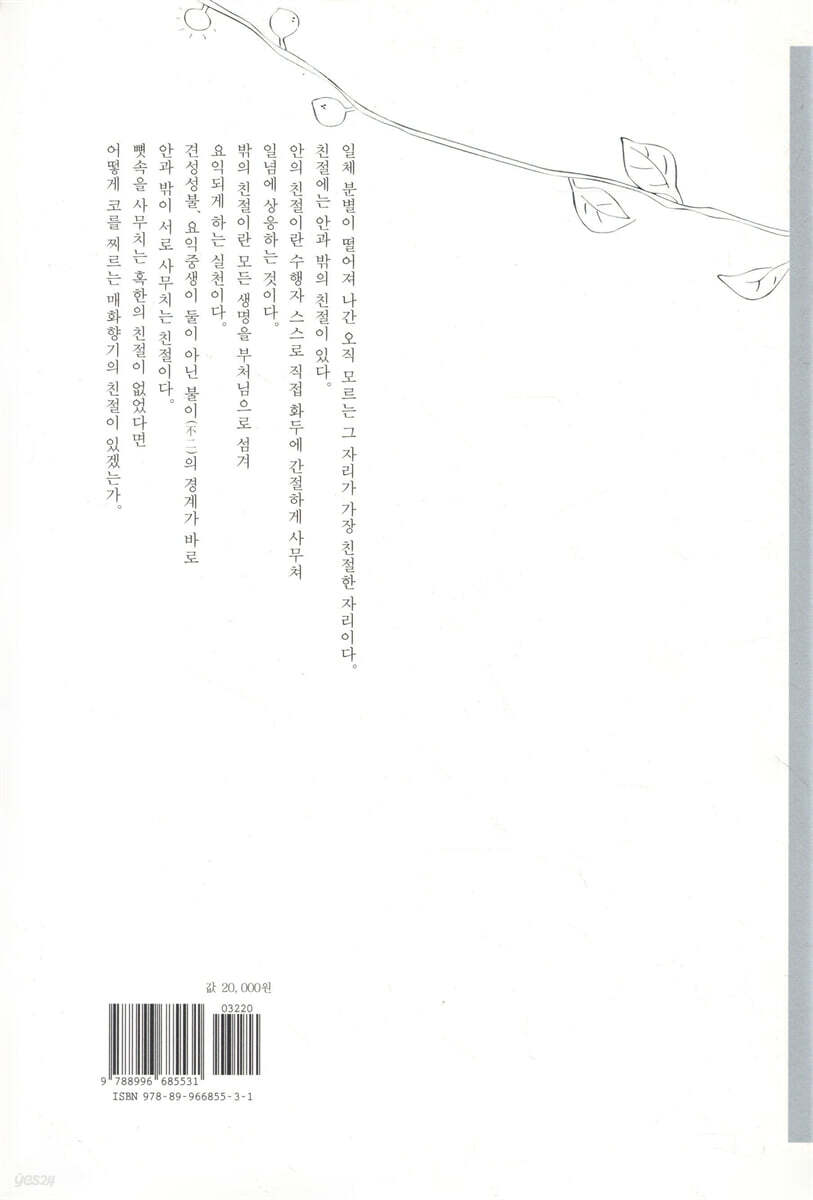 일체 분별이 떨어져 나간 오직 모르는 그 자리가 가장 친절한 자리이다.
친절에는 안과 밖의 친절이 있다.
안의 친절이란 수행자 스스로 직접 화두에 간절하게 사무쳐
일념에 상응하는 것이다.
밖의 친절이란 모든 생명을 부처님으로 섬겨
요익되게 하는 실천이다.
견성성불, 요익중생이 둘이 아닌 불이(不二)의 경계가 바로
안과 밖이 서로 사무치는 친절이다.
뼛속을 사무치는 혹한의 친절이 없었다면
어떻게 코를 찌르는 매화향기의 친절이 있겠는가.
값 20,000원
03220
9 788996 685531
ISBN 978-89-966855-3-1
yes24